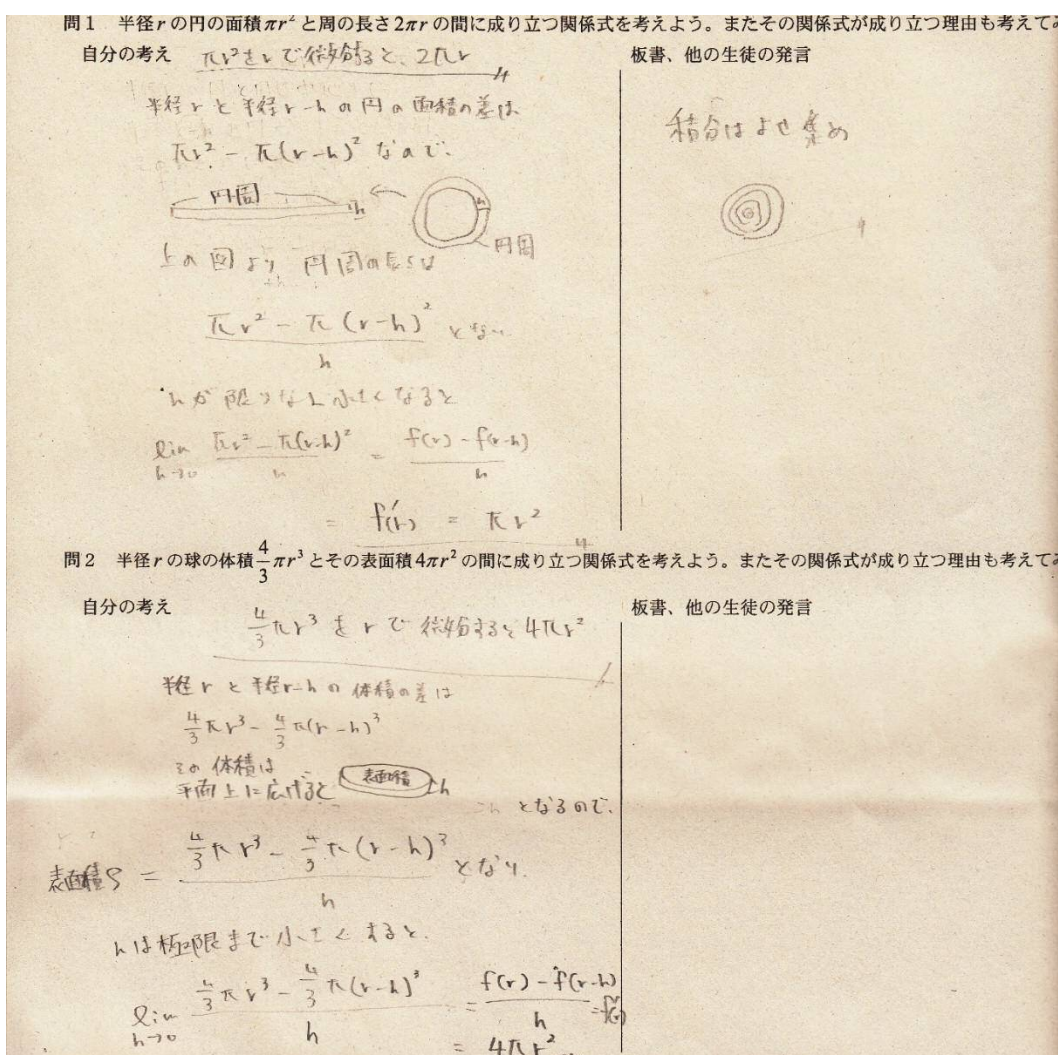 問1 半径rの円の面積πr²と周の長さ2πrの間に成り立つ関係式を考えよう。またその関係式が成り立つ理由も考えて
自分の考え πr²をrで微分すると、2πr
半径rと半径r-hの円の面積の差は
πr² - π(r-h)² なので、
円周 h
h 円周
上の図より 円周の長さは
πr² - π(r-h)² / h となり
hが限りなく小さくなると
lim h→0 πr² - π(r-h)² / h = f(r) - f(r-h) / h
= f'(r) = πr²
板書、他の生徒の発言
積分はよせ集め
問2 半径rの球の体積4/3πr³とその表面積4πr²の間に成り立つ関係式を考えよう。またその関係式が成り立つ理由も考えて
自分の考え
4/3πr³をrで微分すると4πr²
半径rと半径r-hの体積の差は
4/3πr³ - 4/3π(r-h)³
その体積は
平面上に広げると 表面積 h
となるので、
表面積S = 4/3πr³ - 4/3π(r-h)³ / h となり、
hは極限まで小さくすると、
lim h→0 4/3πr³ - 4/3π(r-h)³ / h = f(r) - f(r-h) / h = f'(r)
= 4πr²
板書、他の生徒の発言